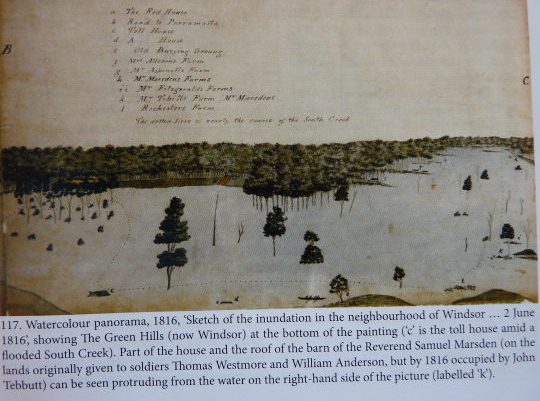 a The Red House
b Road to Parramatta
c Toll House
d A House
e Old Burying Ground
f Mrs Farm
g Mr Aspenalls Farm
h Mr Marsdens Farms
i i Mr Fitzgeralds Farms
k Mr Tebitts Farm Mr Marsdens
l Rochesters Farm
The dotted lines is nearly the course of the South Creek
B
C
117. Watercolour panorama, 1816, ‘Sketch of the inundation in the neighbourhood of Windsor … 2 June
1816’, showing The Green Hills (now Windsor) at the bottom of the painting (‘c’ is the toll house amid a
flooded South Creek). Part of the house and the roof of the barn of the Reverend Samuel Marsden (on the
lands originally given to soldiers Thomas Westmore and William Anderson, but by 1816 occupied by John
Tebbutt) can be seen protruding from the water on the right-hand side of the picture (labelled ‘k’).